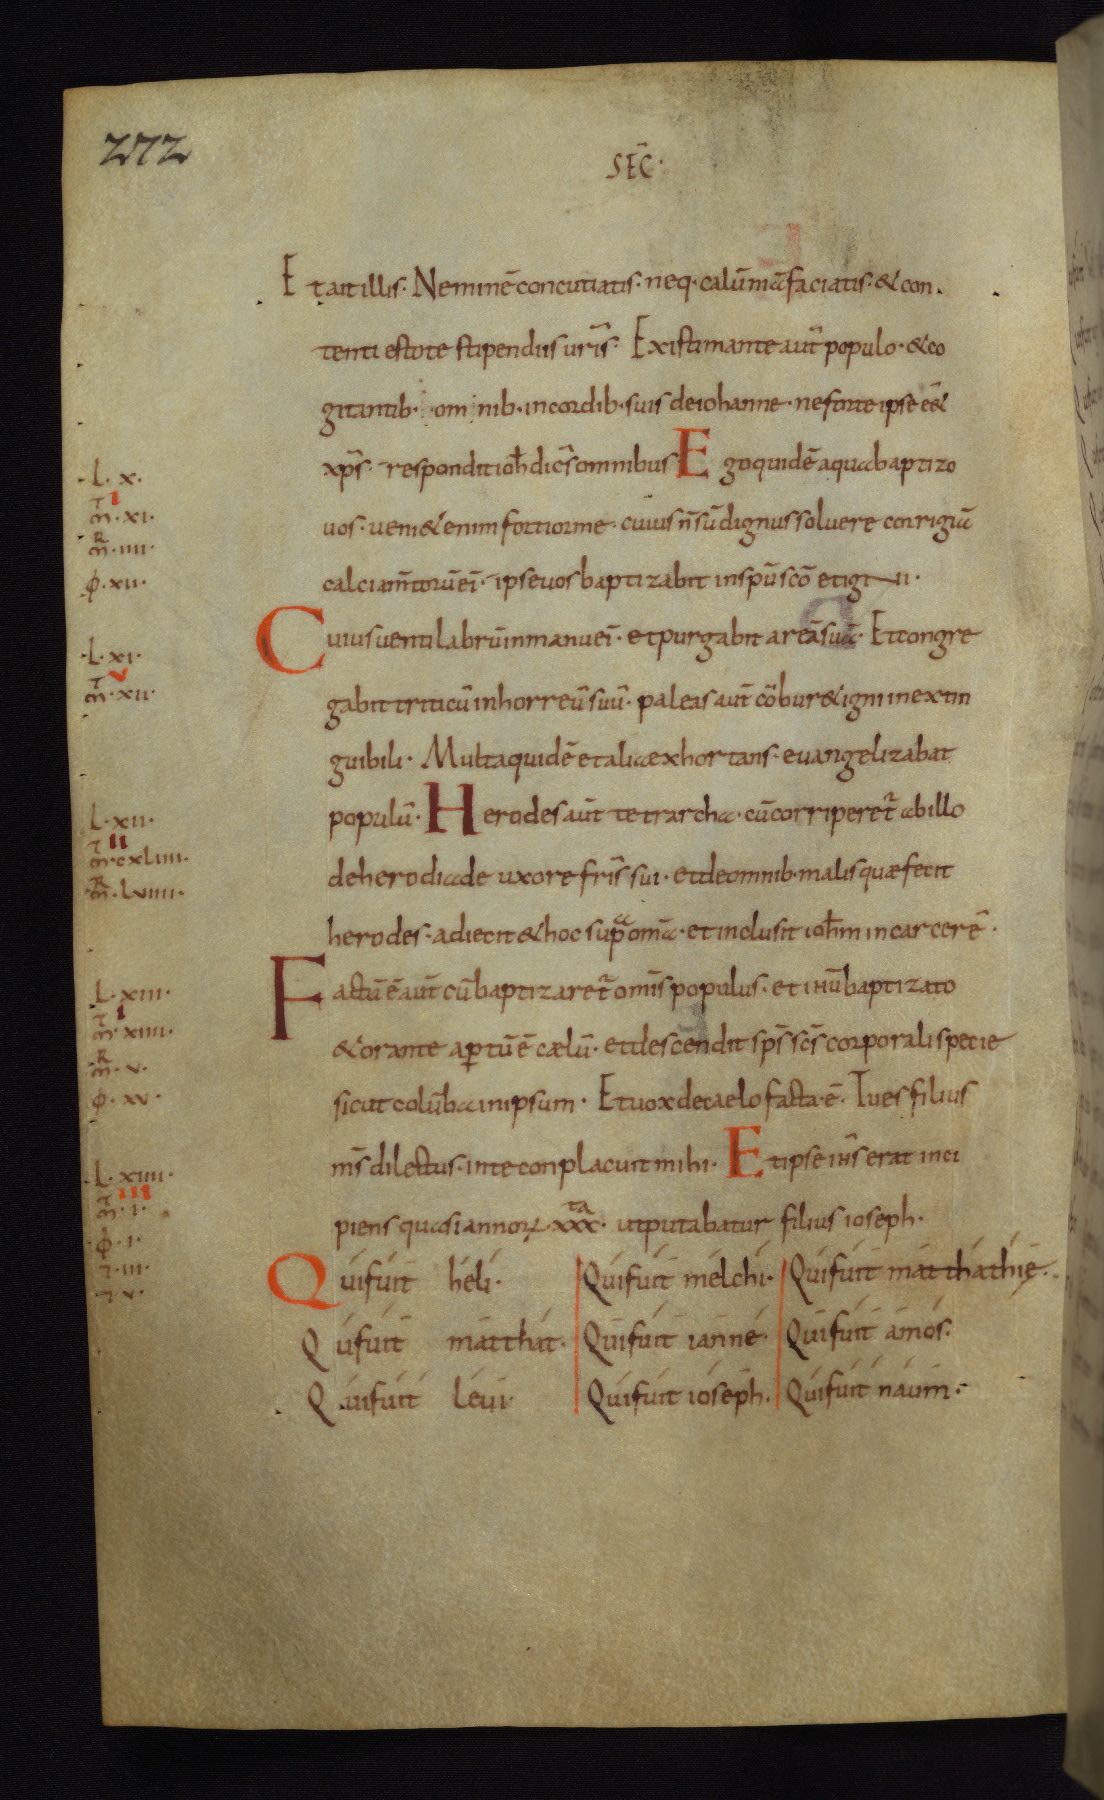 272
SEC̄·
Et ait illis· Neminē concutiatis· neq· calūniā faciatis· & con
tenti estote stipendiis uris̄· Existimante aut̄ populo· & co
gitantib· omnib· in cordib· suis de iohanne· ne forte ipse ēē&
xp̄s· respondit ioh̄ dic̄s omnibus Ego quidē aqua baptizo
uos· ueni& enim fortior me· cuius n̄ sū dignus soluere corrigiā
calciam̄torū ei̅· ipse uos baptizabit in sp̄u sc̄o et igni·
Cuius uentilabrū in manu ei̅· et purgabit areā suā· Et congre
gabit triticū in horreū suū· paleas aut̄ cōbur& igni inextin
guibili· Multa quidē et alia exhortans· euangelizabat
populū· Herodes aut̄ tetrarcha· cū corriperet̄ ab illo
de herodiade uxore fris̄ sui· et de omnib· malis quæ fecit
herodes· adiecit & hoc supra om̄a· et inclusit ioh̄m in carcerē·
Factū ē aut̄ cū baptizaret̄ om̄s populus· et ihū baptizato
& orante apertū ē cælū· et descendit sp̄s sc̄s corporali specie
sicut colūba in ipsum· Et uox de caelo facta ē· Tu es filius
m̄s dilectus· in te conplacuit mihi· Et ipse ih̄s erat inci
piens quasi annoꝝ xxx ta· ut putabatur filius ioseph·
Qui fuit heli· Qui fuit melchi· Qui fuit matthathie·
Qui fuit matthat· Qui fuit ianne· Qui fuit amos·
Qui fuit leui· Qui fuit ioseph· Qui fuit naum·
L· x·
T I
m̄· xi·
R
m̄· iiii·
ɸ· xii·
L· xi·
T V
m̄· xii·
L· xii·
T II
m̄· cxliiii·
R
m̄· Lviiii·
L· xiii·
T I
m̄· xiiii·
R
m̄· v·
ɸ· xv·
L· xiiii·
T III
m̄· i·
ɸ· i·
⁊· iii·
⁊· v·